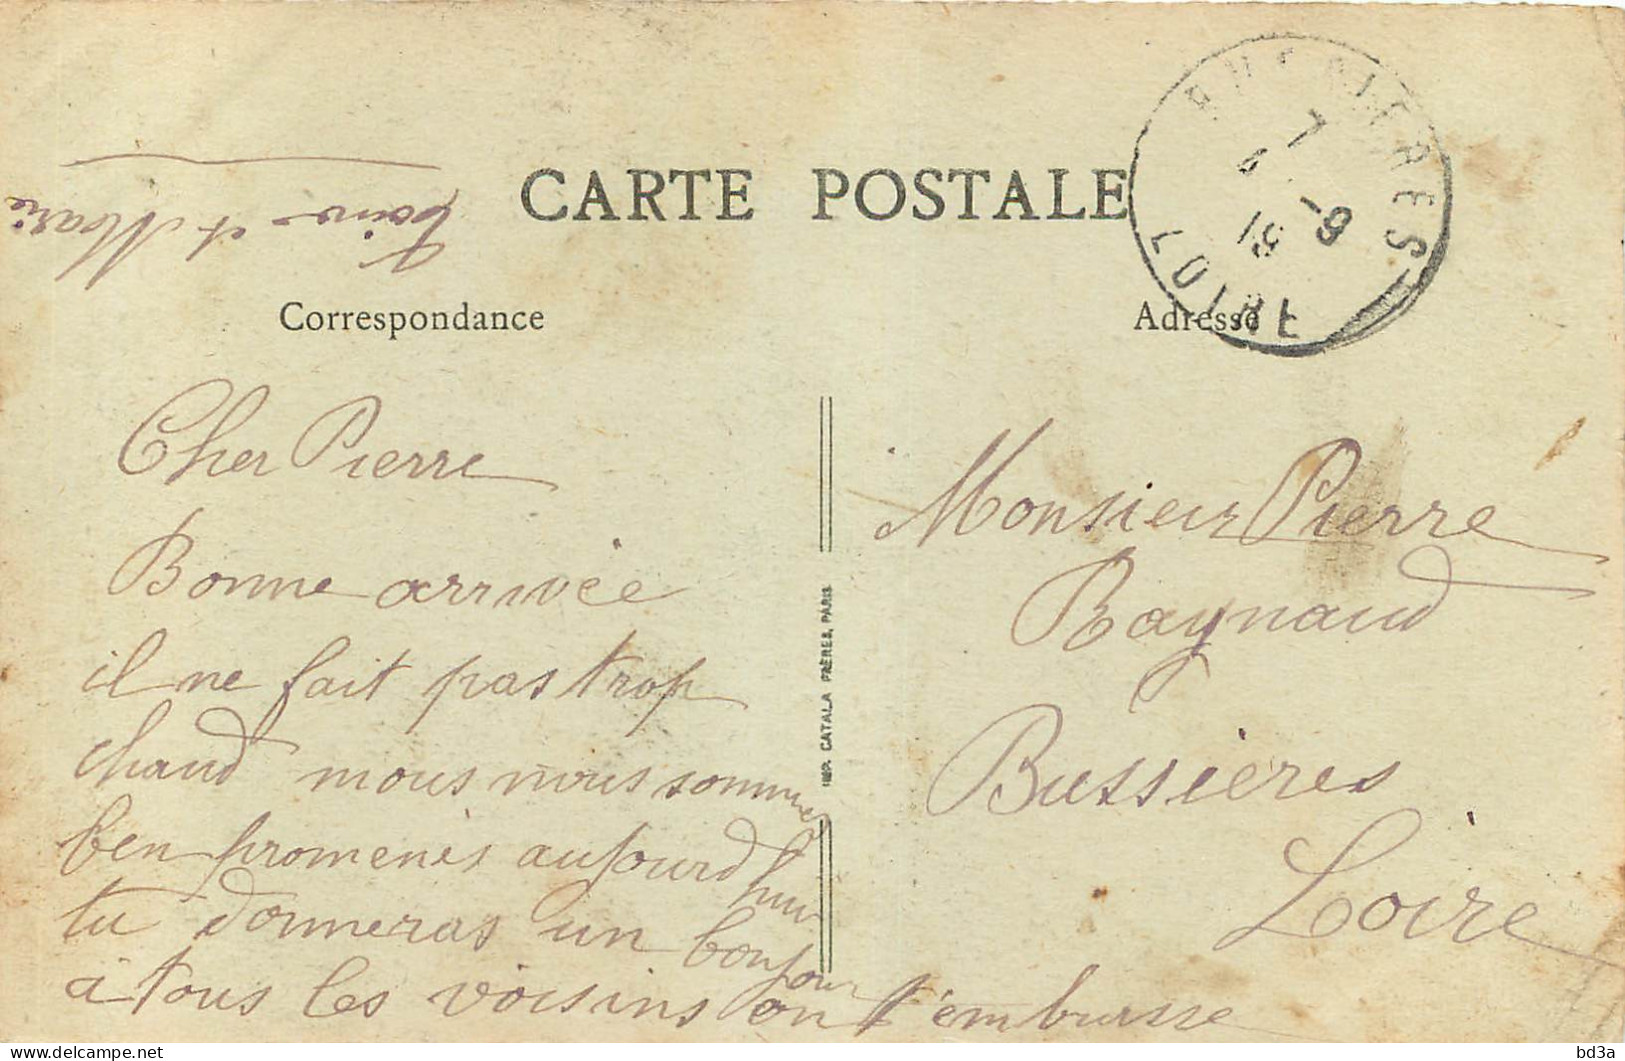 CARTE POSTALE
Correspondance
Adresse
et Marie
Cher Pierre
Bonne arrivée
il ne fait pas trop
chaud nous nous sommes
ben promenés aujourd
hui
tu donneras un bonjour
à tous les voisins on t'embrasse
Monsieur Pierre
Raynaud
Bussières
Loire
IMP. CATALA FRÈRES, PARIS
LOIRE
bd3a